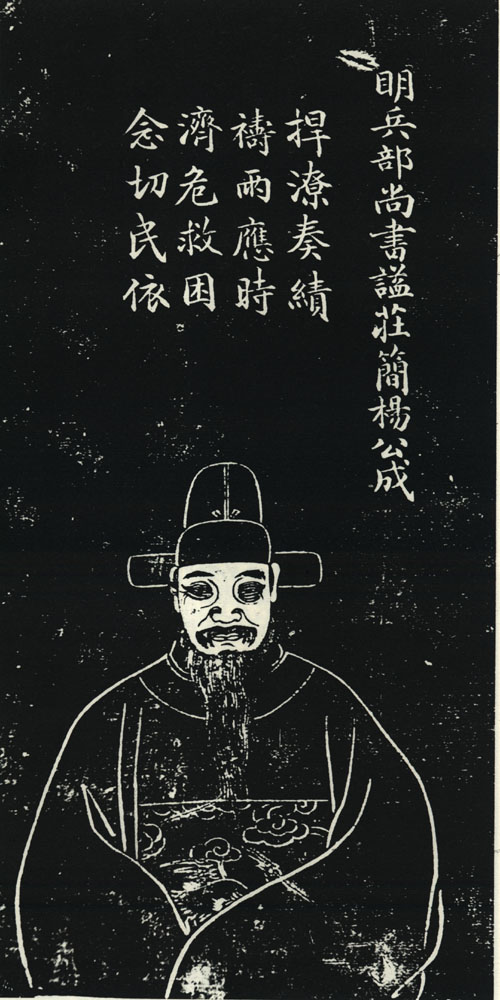 明兵部尚書謚莊簡楊公成
捍潦奏績
禱雨應時
濟危救困
念切民依